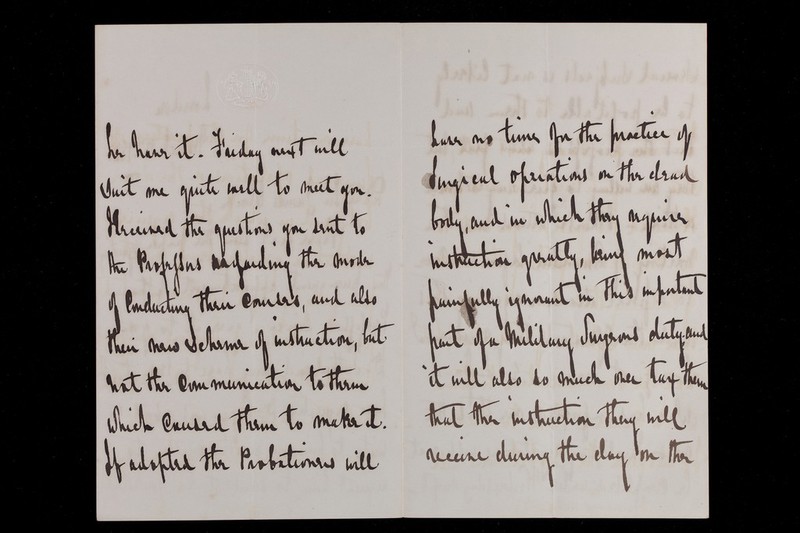 her have it. Friday next will
suit me quite well to meet you.
I received the questions you sent to
the Professors regarding the mode
of Conducting their Courses, and also
their new Scheme of instruction, but
not the Communication to them
which Caused them to make it.
If adopted the Probationers will
have no time for the practice of
Surgical operations on the dead
body, and in which they require
instruction greatly, being most
painfully ignorant in this important
part of a Military Surgeons duty, and
it will also so much over tax them
that the instruction they will
receive during the day on the